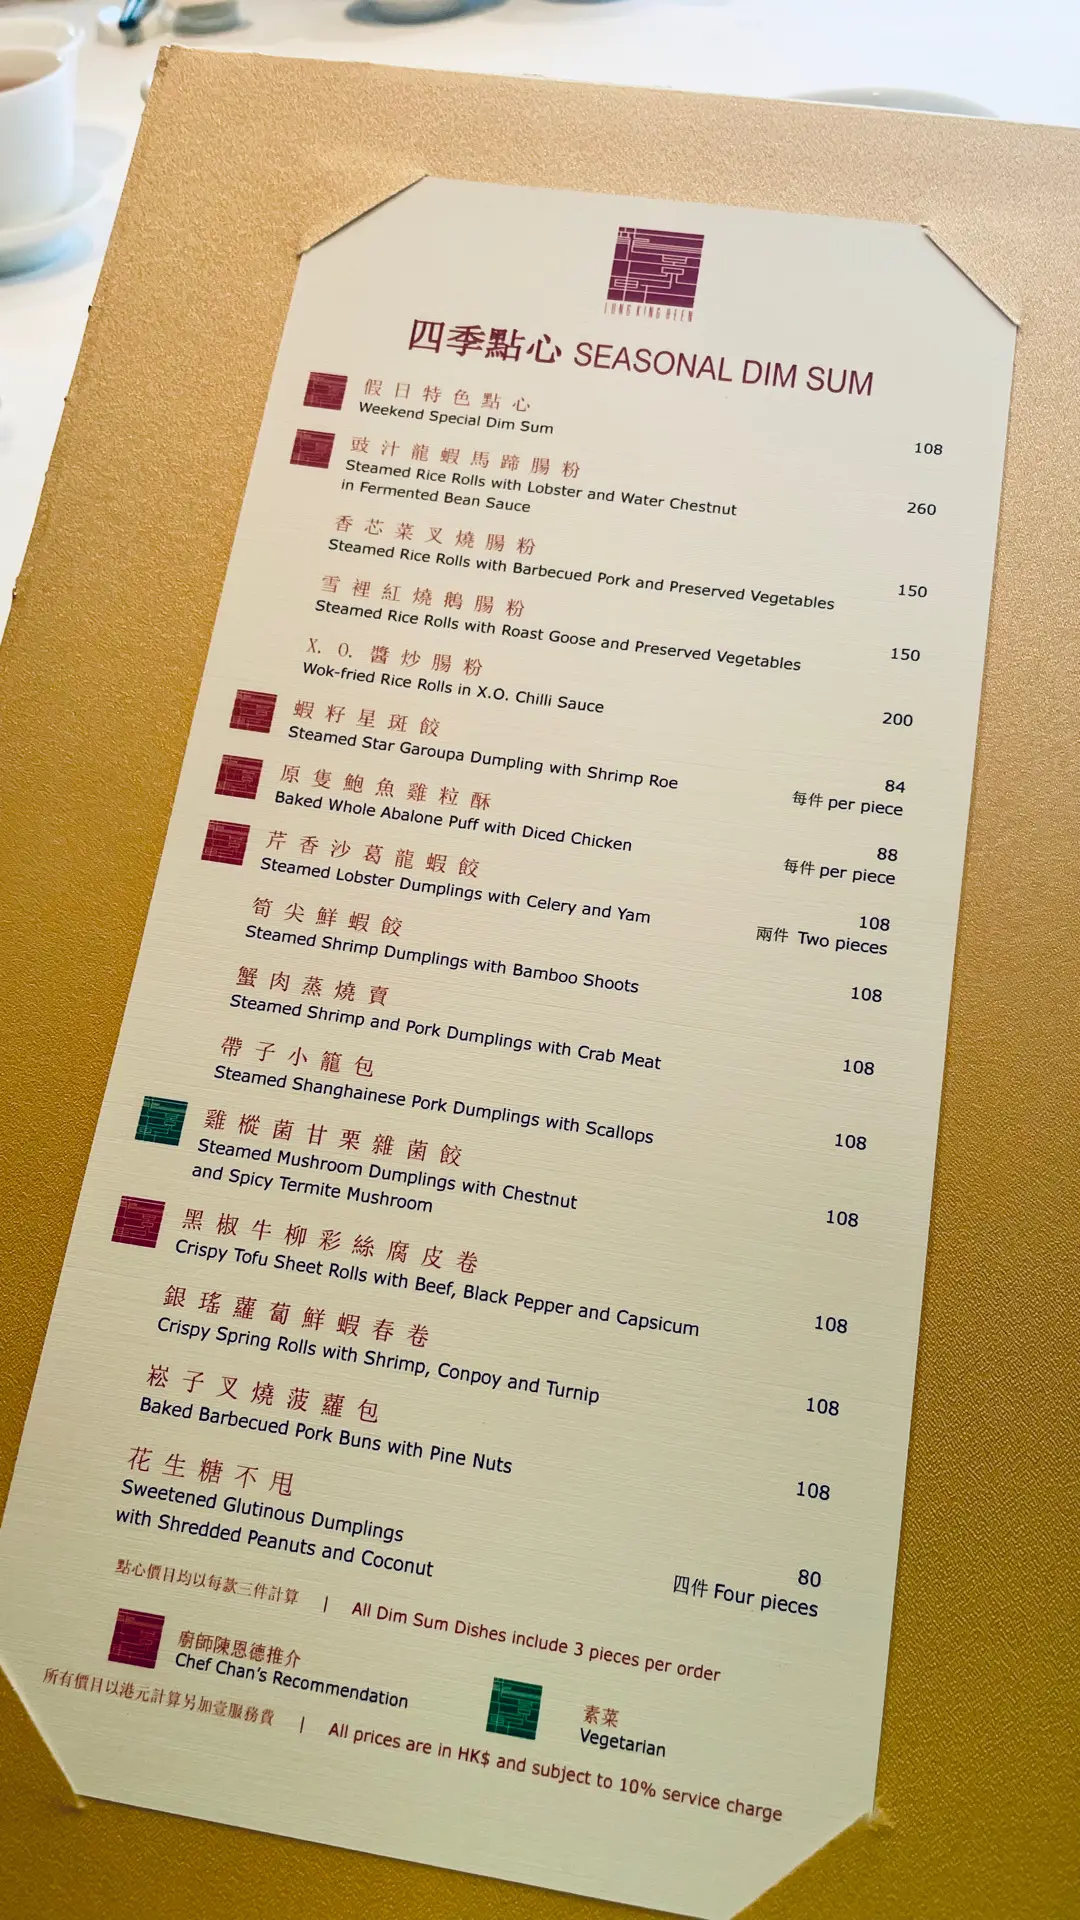 LUNG KING HEEN
四季點心 SEASONAL DIM SUM
假日特色點心
Weekend Special Dim Sum
108
豉汁龍蝦馬蹄腸粉
Steamed Rice Rolls with Lobster and Water Chestnut
in Fermented Bean Sauce
260
香芯菜叉燒腸粉
Steamed Rice Rolls with Barbecued Pork and Preserved Vegetables
150
雪裡紅燒鵝腸粉
Steamed Rice Rolls with Roast Goose and Preserved Vegetables
150
X. O. 醬炒腸粉
Wok-fried Rice Rolls in X.O. Chilli Sauce
200
蝦籽星斑餃
Steamed Star Garoupa Dumpling with Shrimp Roe
84
每件 per piece
原隻鮑魚雞粒酥
Baked Whole Abalone Puff with Diced Chicken
88
每件 per piece
芹香沙葛龍蝦餃
Steamed Lobster Dumplings with Celery and Yam
108
兩件 Two pieces
筍尖鮮蝦餃
Steamed Shrimp Dumplings with Bamboo Shoots
108
蟹肉蒸燒賣
Steamed Shrimp and Pork Dumplings with Crab Meat
108
帶子小籠包
Steamed Shanghainese Pork Dumplings with Scallops
108
雞樅菌甘栗雜菌餃
Steamed Mushroom Dumplings with Chestnut
and Spicy Termite Mushroom
108
黑椒牛柳彩絲腐皮卷
Crispy Tofu Sheet Rolls with Beef, Black Pepper and Capsicum
108
銀瑤蘿蔔鮮蝦春卷
Crispy Spring Rolls with Shrimp, Conpoy and Turnip
108
崧子叉燒菠蘿包
Baked Barbecued Pork Buns with Pine Nuts
108
花生糖不甩
Sweetened Glutinous Dumplings
with Shredded Peanuts and Coconut
80
四件 Four pieces
點心價目均以每款三件計算 | All Dim Sum Dishes include 3 pieces per order
廚師陳恩德推介
Chef Chan's Recommendation
素菜
Vegetarian
所有價目以港元計算另加壹服務費 | All prices are in HK$ and subject to 10% service charge